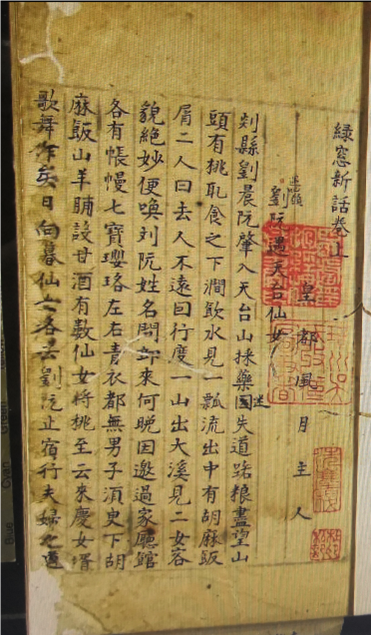 綠窓新話卷上
皇都風月主人
劉阮遇天台仙女
剡縣劉晨阮肇入天台山採藥迷失道路粮盡望山
頭有桃取食之下澗飲水見一瓢流出中有胡麻飯
屑二人曰去人不遠囙行度一山出大溪見二女容
貌絶妙便喚刘阮姓名問郎來何晚因邀過家廳舘
各有帳幔七寳瓔珞左右青衣都無男子湏臾下胡
麻飯山羊脯設甘酒有數仙女將桃至云來慶女壻
歌舞作矣日向暮仙女各去劉阮止宿行夫婦之道
Cyan
Blue